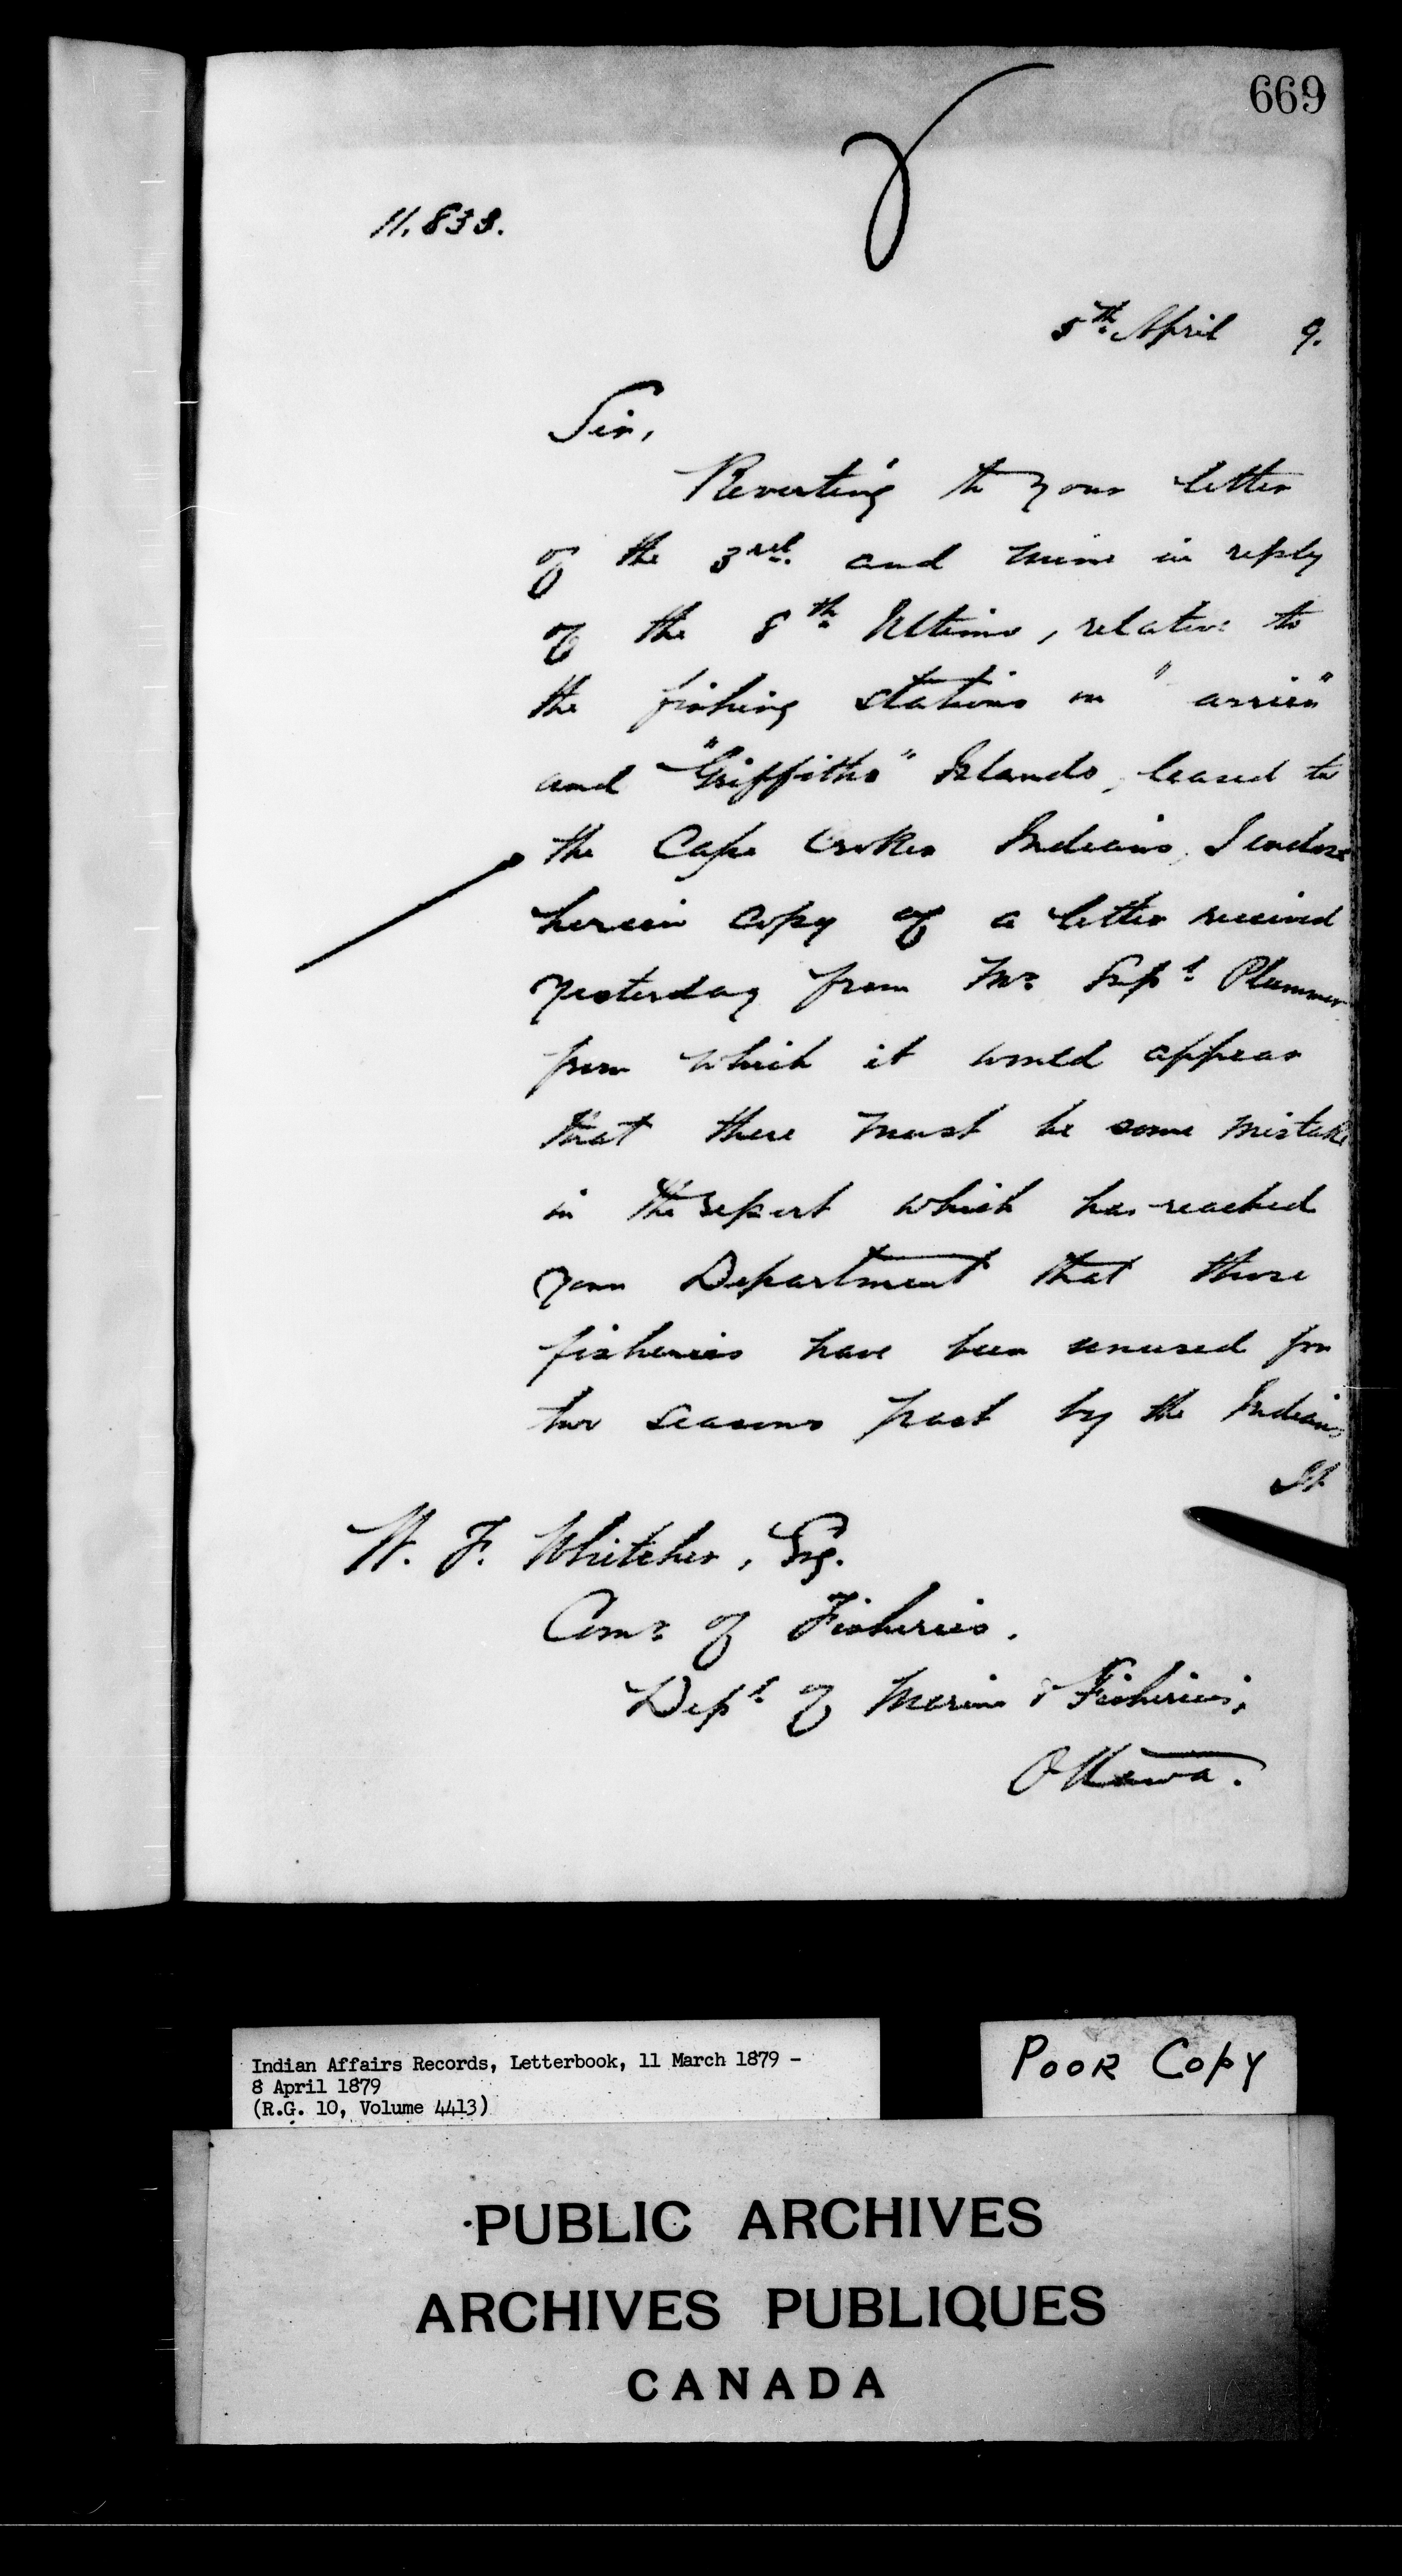 669
11.833.
5th April 9.
Sir,
Reverting to your letter
of the 3rd. and mine in reply
of the 8th Ultimo, relative to
the fishing stations on "
and "Griffiths" Islands, leased to
the Cape Croker Indians, I enclose
herein copy of a letter received
yesterday from Mr Supt Plummer
from which it would appear
that there must be some mistake
in the report which has reached
your Department that those
fisheries have been unused for
two seasons past by the Indians
It
W. F. Whitcher, Esq.
Comr of Fisheries.
Dept of Marine & Fisheries,
Ottawa.
Indian Affairs Records, Letterbook, 11 March 1879 -
8 April 1879
(R.G. 10, Volume 4413)
POOR COPY
PUBLIC ARCHIVES
ARCHIVES PUBLIQUES
CANADA